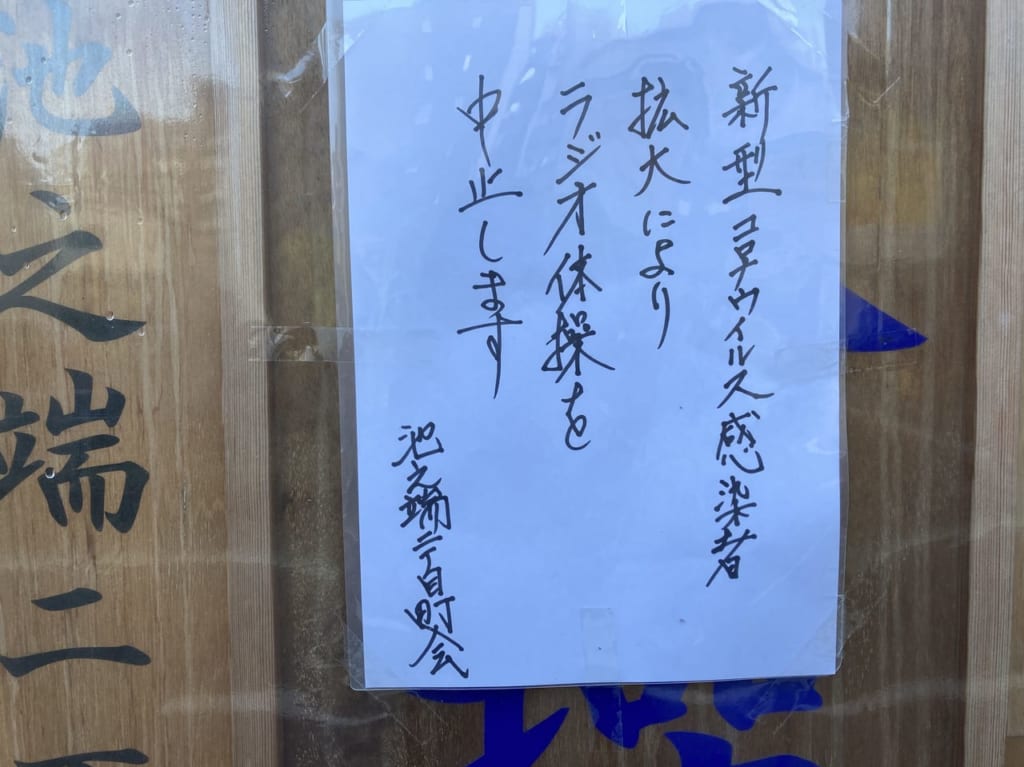 新型コロナウイルス感染者
拡大により
ラジオ体操を
中止します
池之端二丁目町会
池之端二